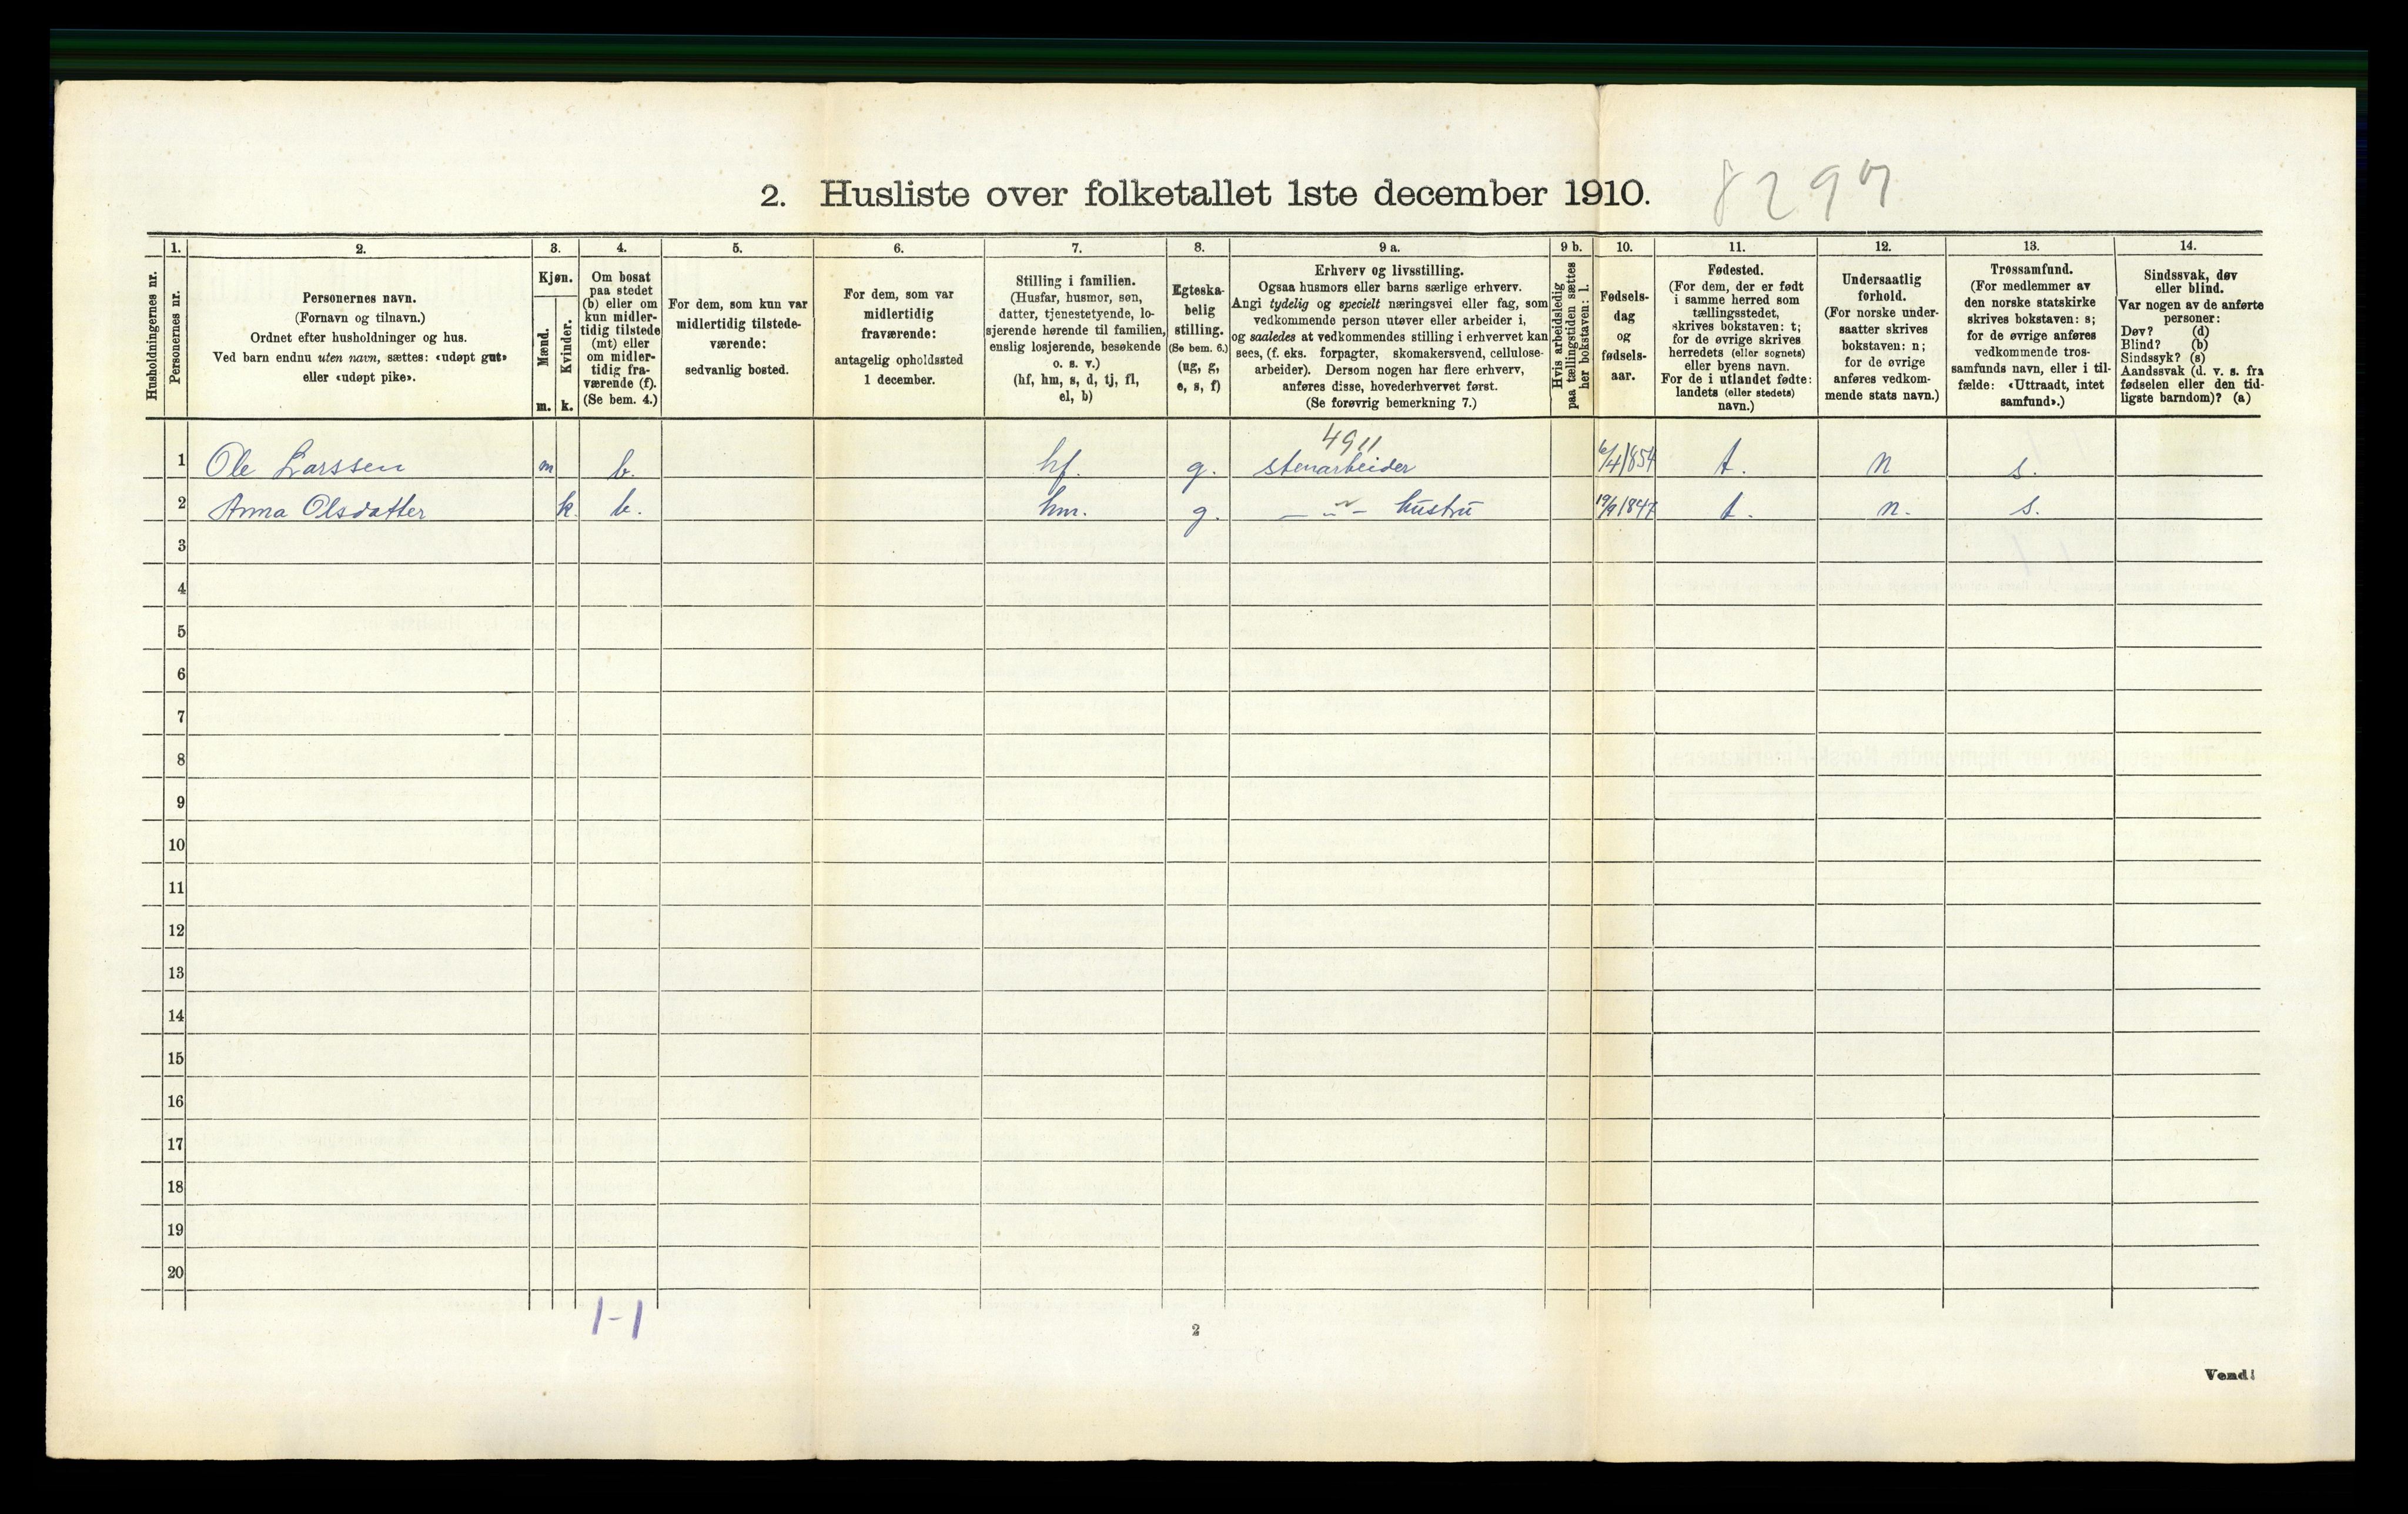 2. Husliste over folketallet 1ste december 1910. 8297
Husholdningernes nr.
1.
Personernes nr.
2.
Personernes navn.
(Fornavn og tilnavn.)
Ordnet efter husholdninger og hus.
Ved barn endnu uten navn, sættes: «udøpt gut»
eller «udøpt pike».
3.
Kjøn.
Mænd.
Kvinder.
m. k.
4.
Om bosat
paa stedet
(b) eller om
kun midler-
tidig tilstede
(mt) eller
om midler-
tidig fra-
værende (f).
(Se bem. 4.)
5.
For dem, som kun var
midlertidig tilstede-
værende:
sedvanlig bosted.
6.
For dem, som var
midlertidig
fraværende:
antagelig opholdssted
1 december.
7.
Stilling i familien.
(Husfar, husmor, søn,
datter, tjenestetyende, lo-
sjerende hørende til familien,
enslig losjerende, besøkende
o. s. v.)
(hf, hm, s, d, tj, fl,
el, b)
8.
Egteska-
belig
stilling.
(Se bem. 6.)
(ug, g,
e, s, f)
9 a.
Erhverv og livsstilling.
Ogsaa husmors eller barns særlige erhverv.
Angi tydelig og specielt næringsvei eller fag, som
vedkommende person utøver eller arbeider i,
og saaledes at vedkommendes stilling i erhvervet kan
sees, (f. eks. forpagter, skomakersvend, cellulose-
arbeider). Dersom nogen har flere erhverv,
anføres disse, hovederhvervet først.
(Se forøvrig bemerkning 7.)
9 b.
Hvis arbeidsledig
paa tællingstiden sættes
her bokstaven: l.
10.
Fødsels-
dag
og
fødsels-
aar.
11.
Fødested.
(For dem, der er født
i samme herred som
tællingsstedet,
skrives bokstaven: t;
for de øvrige skrives
herredets (eller sognets)
eller byens navn.
For de i utlandet fødte:
landets (eller stedets)
navn.)
12.
Undersaatlig
forhold.
(For norske under-
saatter skrives
bokstaven: n;
for de øvrige
anføres vedkom-
mende stats navn.)
13.
Trossamfund.
(For medlemmer av
den norske statskirke
skrives bokstaven: s;
for de øvrige anføres
vedkommende tros-
samfunds navn, eller i til-
fælde: «Uttraadt, intet
samfund».)
14.
Sindssvak, døv
eller blind.
Var nogen av de anførte
personer:
Døv? (d)
Blind? (b)
Sindssyk? (s)
Aandssvak (d. v. s. fra
fødselen eller den tid-
ligste barndom)? (a)
4911
1 Ole Larssen m b. hf. g. stenarbeider 6/4 1854 t. n s.
2 Anna Olsdatter k. b. hm. g. — " — hustru 19/9 1847 t. n. s.
3
4
5
6
7
8
9
10
11
12
13
14
15
16
17
18
19
20
1-1
2
Vend!